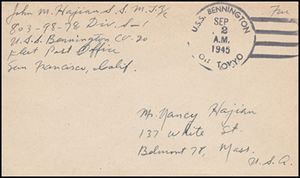 John M. Hajian S.S.M.J. 3/c
803-98-78 Div. S-1
U.S.S. Bennington CV-20
Fleet Post Office
San Francisco, Calif.
Free
U.S.S. BENNINGTON
SEP
2
A.M.
1945
Off TOKYO
Ms. Nancy Hajian
137 White St.
Belmont 78, Mass.
U.S.A.